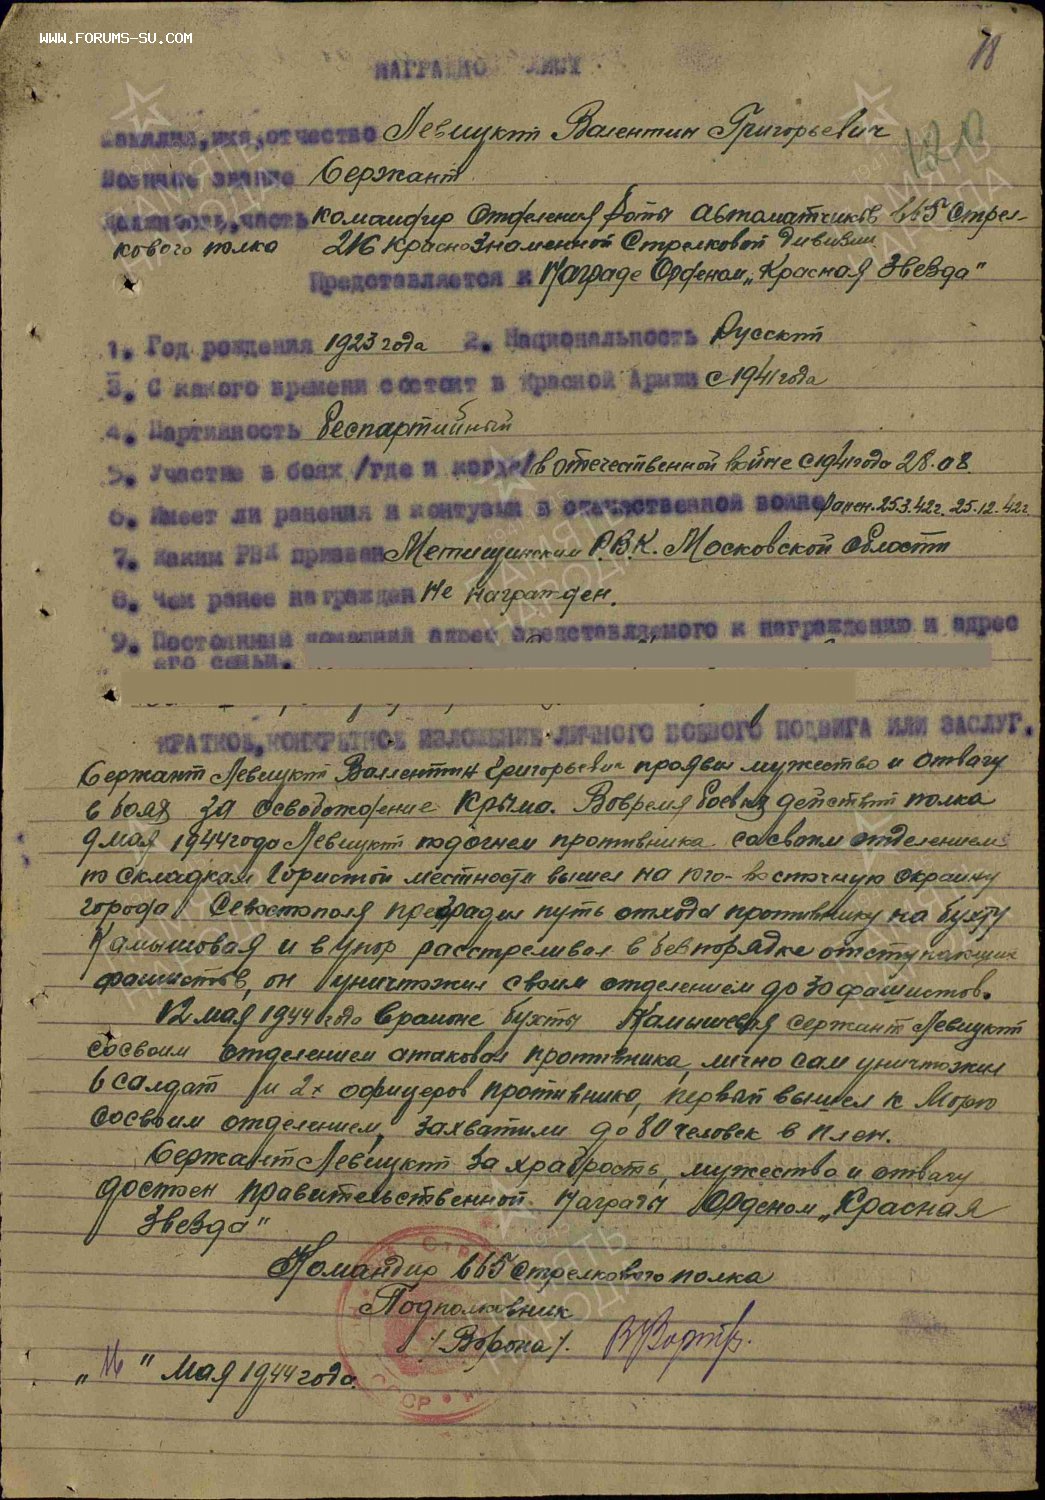 WWW.FORUMS-SU.COM
18
НАГРАДНО ЛИСТ
120
Фамилия, имя, отчество Левицкий Валентин Григорьевич
Военное звание Сержант
Должность, часть Командир Отделения роты автоматчиков 665 Стрел-
кового полка 216 Краснознаменной Стрелковой Дивизии
Представляется к Награде Орденом „Красная Звезда"
1. Год рождения 1923 года 2. Национальность Русский
3. С какого времени состоит в Красной Армии с 1941 года
4. Партийность беспартийный
5. Участие в боях /где и когда/ в отечественной войне с 1941 года 28.08.
6. Имеет ли ранения и контузии в отечественной войне ранен. 25.3.42г. 25.12.42г.
7. Каким РВК призван Метищинским Р.В.К. Московской области
8. Чем ранее награжден Не награжден.
9. Постоянный домашний адрес представляемого к награждению и адрес
его семьи.
КРАТКОЕ, КОНКРЕТНОЕ ИЗЛОЖЕНИЕ ЛИЧНОГО БОЕВОГО ПОДВИГА ИЛИ ЗАСЛУГ.
Сержант Левицкий Валлентин Григорьевич проявил мужество и отвагу
в боях за освобождение Крыма. Вовремя боевых действий полка
9 мая 1944 года Левицкий под огнем противника сосвоим отделением
по складкам Гористой местности вышел на юго-восточную окраину
города Севастополя преградил путь отхода противнику на бухту
Камышовая и в упор расстреливал в беспорядке отступающих
фашистов, он уничтожил своим отделением до 30 фашистов.
12 мая 1944 года в районе бухты Камышевая сержант Левицкий
сосвоим отделением атаковал противника, лично сам уничтожил
6 салдат и 2х офицеров противника, первый вышел к Морю
сосвоим отделением, захватили до 80 человек в плен.
Сержант Левицкий за храбрость, мужество и отвагу
достоен правительственной награды Орденом „Красная
Звезда"
Командир 665 Стрелкового полка
Подполковник
/Ворона/.
„16" Мая 1944 года.
ПАМЯТЬ
НАРОДА